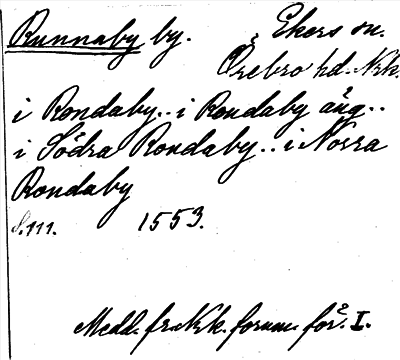 Runnaby by. Ekers sn.
Örebro hd. Nrk.
i Rondaby.. i Rondaby äng..
i Södra Rondaby.. i Norra
Rondaby
S. 111. 1553.
Medd. fr. Nrk. fornm. för. I.